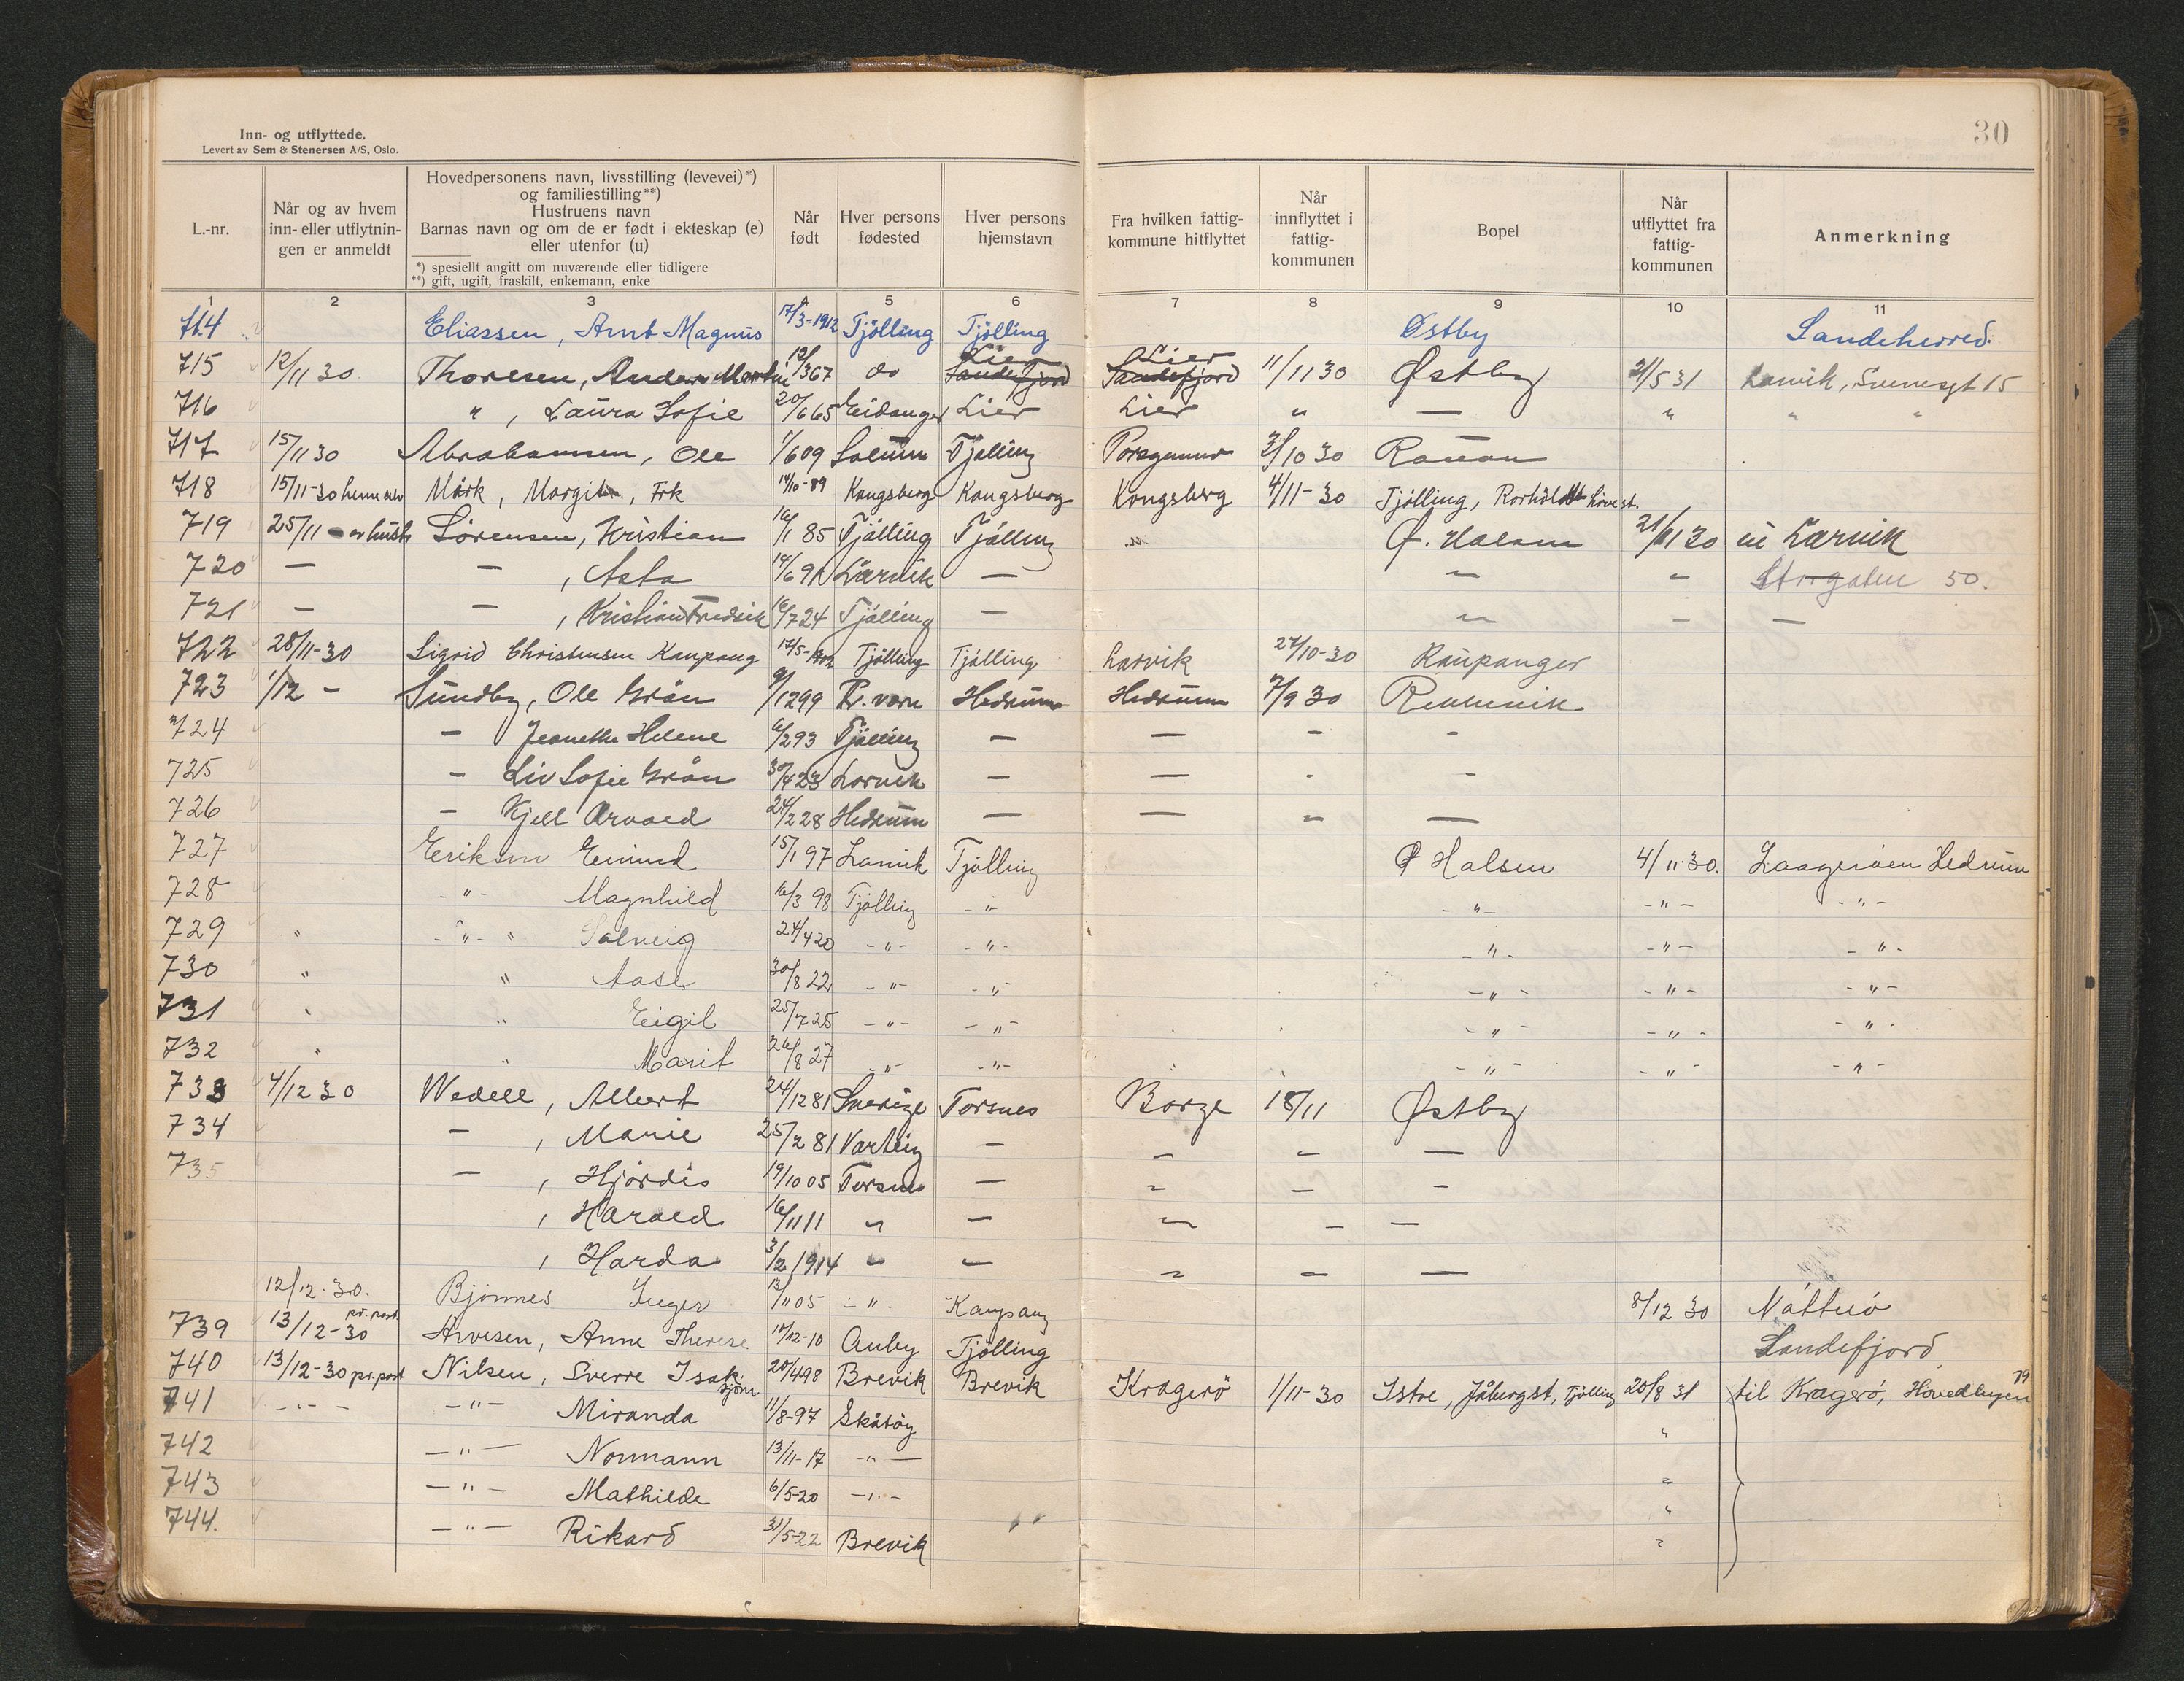 Inn- og utflyttede.
Levert av Sem & Stenersen A/S, Oslo.
30
L.-nr. Når og av hvem inn- eller utflytnin- gen er anmeldt Hovedpersonens navn, livsstilling (levevei)*) og familiestilling**) Hustruens navn Barnas navn og om de er født i ekteskap (e) eller utenfor (u) *) spesiellt angitt om nuværende eller tidligere **) gift, ugift, fraskilt, enkemann, enke Når født Hver persons fødested Hver persons hjemstavn Fra hvilken fattig- kommune hitflyttet Når innflyttet i fattig- kommunen Bopel Når utflyttet fra fattig- kommunen Anmerkning
1 2 3 4 5 6 7 8 9 10 11
714 Eliassen, Arnt Magnus 17/3-1912 Tjölling Tjölling Østby Sandeherred.
715 12/11 30 Thoresen, Anders Martin 12/3 67 do Sandefjord Lier Sandefjord Lier 11/11 30 Østby 21/5 31 Larvik, Svenesgt 15
716 " , Laura Sofie 20/6 65 Eidanger Lier Lier " — " " "
717 15/11 30 Abrahamsen, Ole 1/6 09 Solum Tjölling Porsgrunn 3/10 30 Rauan
718 15/11-30 henne selv Mörk, Margit, Frk 14/10-89 Kongsberg Kongsberg Kongsberg 4/11-30 Tjölling,
719 25/11 - Sörensen, Kristian 16/1 85 Tjölling Tjölling " Ö. Halsen 21/11 30 til Larvik
720 — — , Asta 14/6 91 Larvik — — " Storgaten 50.
721 — — , Kristian Fredrik 16/7 24 Tjölling — — — —
722 28/11-30 Sigrid Christensen Kaupang 17/5- Tjölling Tjölling Larvik 27/10-30 Kaupanger
723 1/12 - Sundby, Ole Grån 9/12 99 Fr. værn Hedrum Hedrum 7/9 30
724 — Jeanette Helene 6/2 93 Tjölling — — - -
725 — Liv Sofie Grån 30/4 23 Larvik — — - -
726 — Kjell Arvald 24/2 28 Hedrum — — - —
727 Eriksen Eivind 15/1 97 Larvik Tjölling Ø Halsen 4/11.30. Laageröen Hedrum
728 -"- Magnhild 16/3 98 Tjölling -"- -"- -"- -"-
729 " -"- " Solveig 24/4 20 -"- -"- -"- -"- -"-
730 " " Aase 30/8 22 -"- -"- -"- -"- -"-
731 " " Eigil 25/7 25 -"- -"- -"- -"- -"-
732 " " Marit 26/8 27 -"- -"- -"- -"- -"-
733 4/12 30 Wedell, Albert 24/12 81 Sverige Torsnes Borge 18/11 Østby
734 — , Marie 25/2 81 Varteig — — — —
735 — , Hjördis 19/10 05 Torsnes — — — —
, Harald 16/11 11 " — — — —
, Harda 3/2 1914 " — — — —
12/12.30. Bjönnes Inger 13/11 05 -"- Kaupang 8/12 30 Nötterö
739 13/12-30 pr. post Arvesen, Anne Therese 10/12-10 Auby Tjölling Sandefjord
740 13/12-30 pr. post Nilsen, Sverre Isak 20/4 98 Brevik Brevik Kragerö 1/11-30 Istre, Jåbergst, Tjölling 20/8 31 til Kragerö, Hovedbyen 19
741 -"- -"- Miranda 11/8-97 Skåtöy
742 -"- Normann 13/11-17 -"- "
743 -"- Mathilde 6/5-20 -"- "
744. -"- Rikard 31/5-22 Brevik "